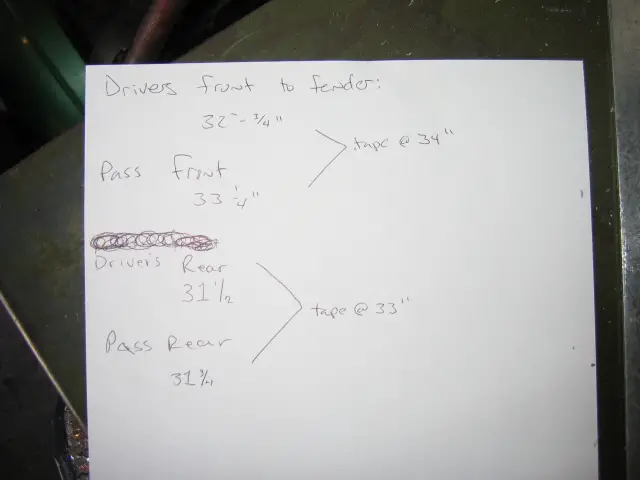 Drivers front to fender:
32"-3/4"
tape @ 34"
Pass Front
33 1/4"
Drivers Rear
31 1/2
tape @ 33"
Pass Rear
31 3/4